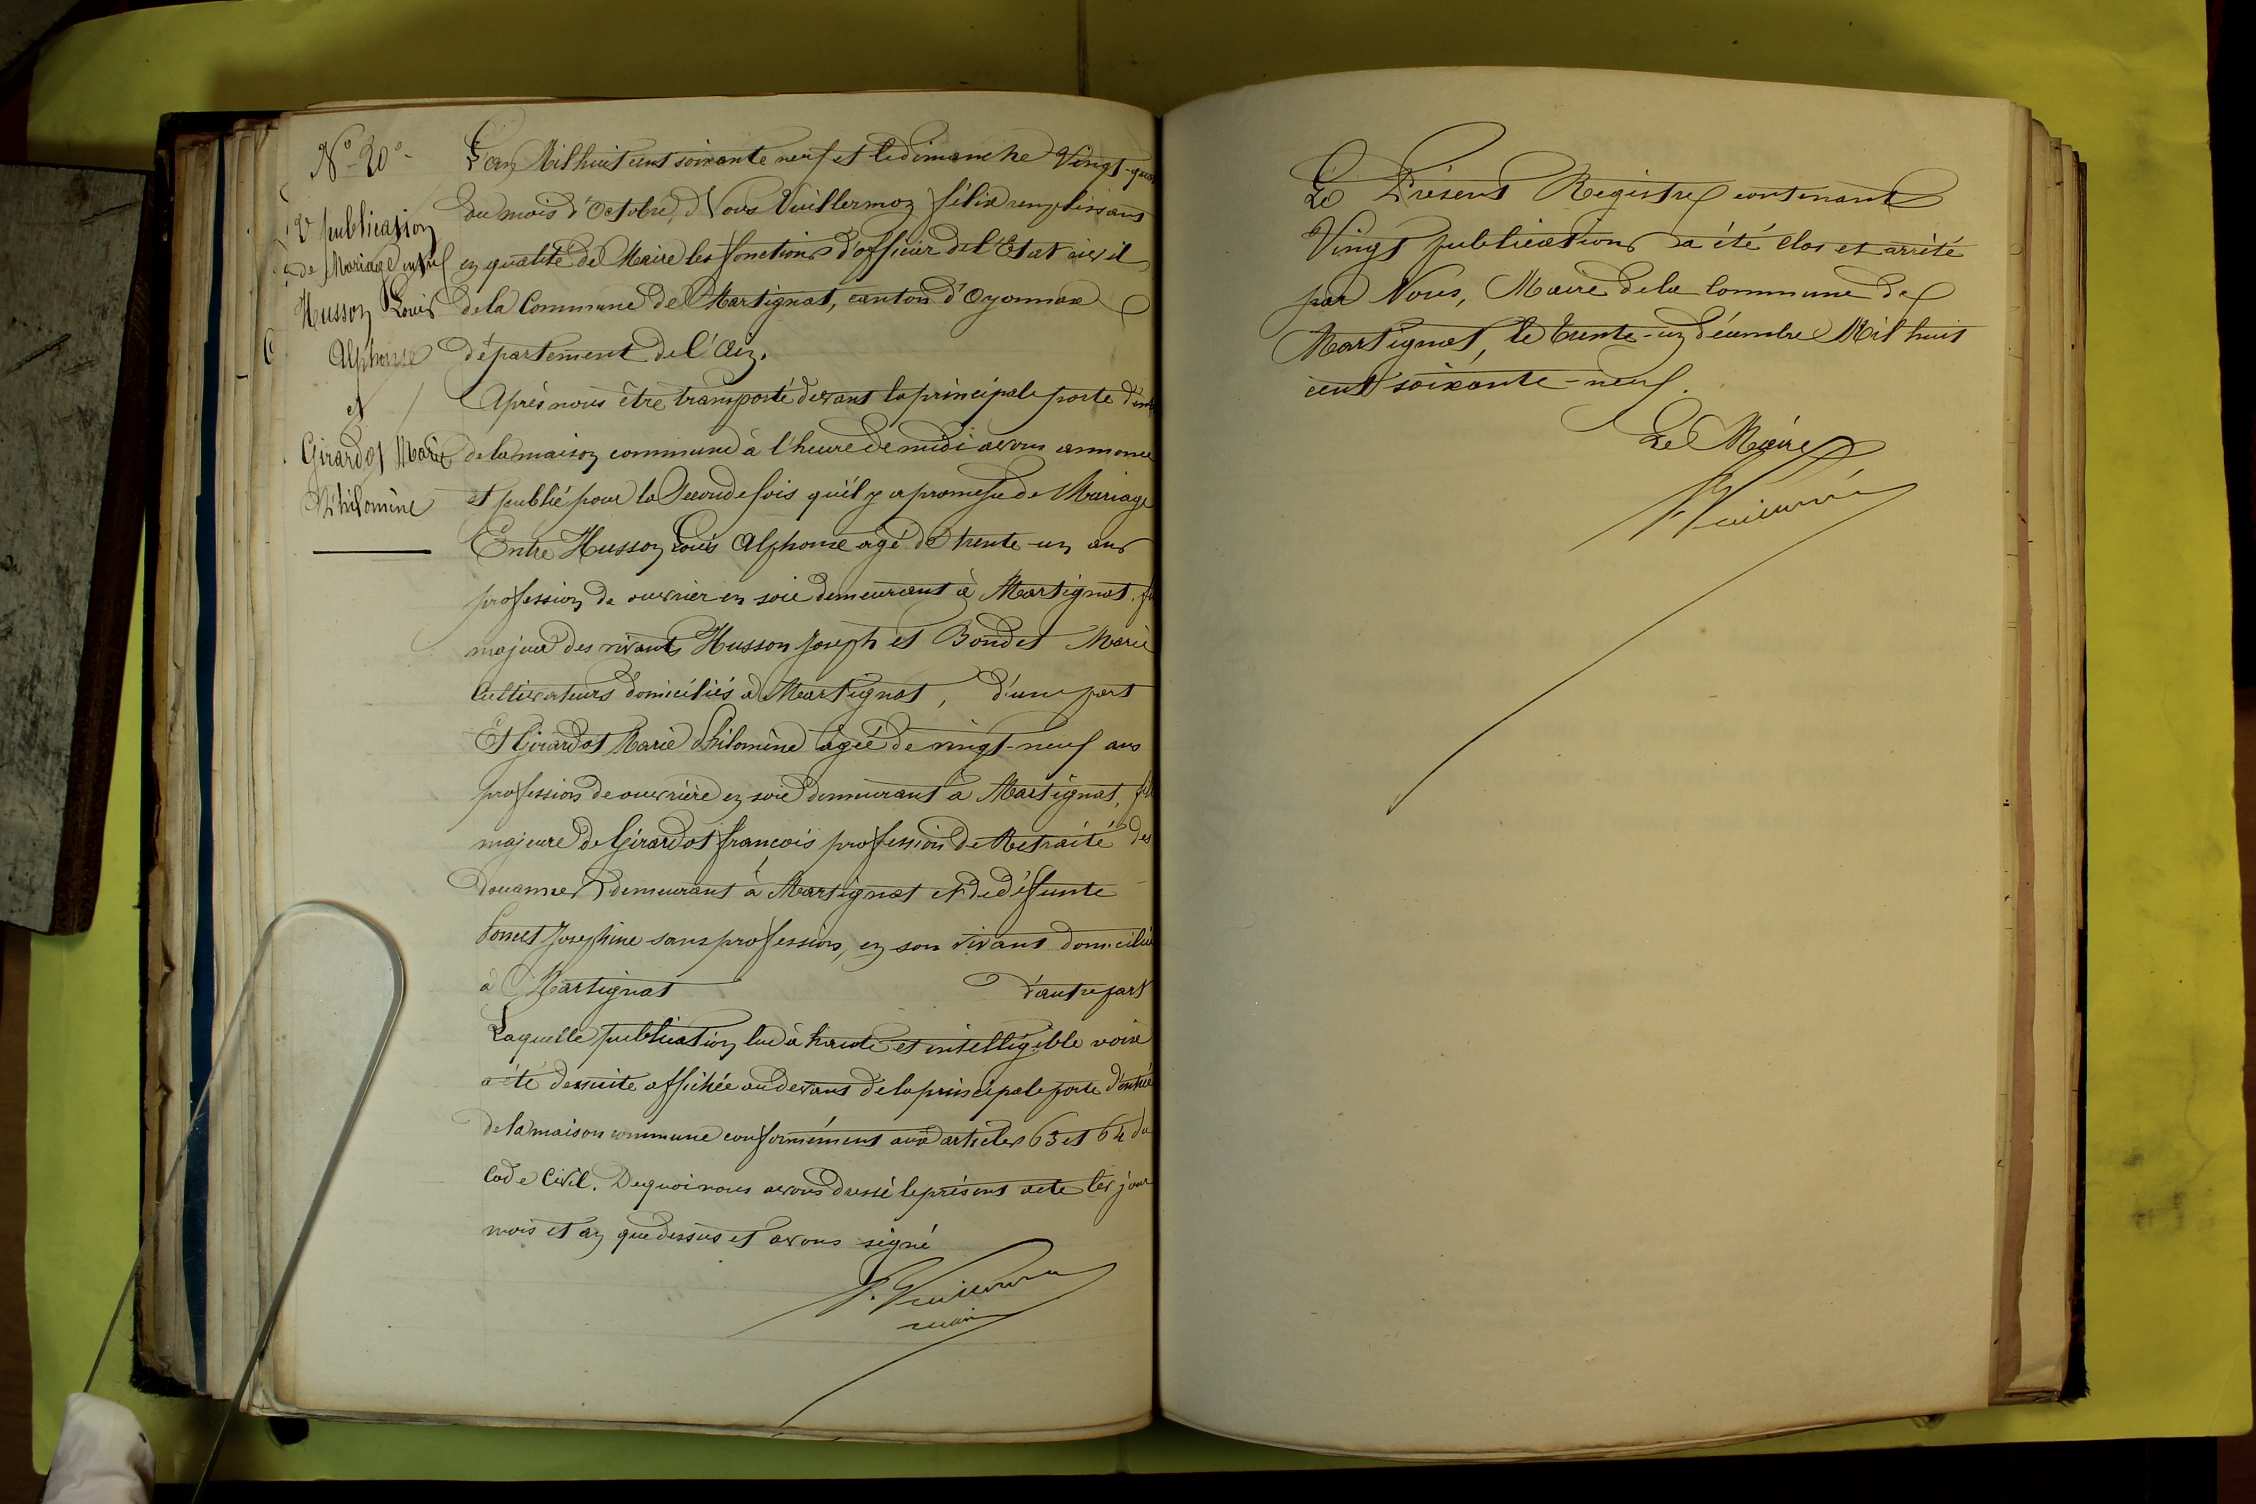 N° 20°
2e publication
de Mariage entre
Husson Louis
Alphonse
et
Girardot Marie
Philomène
L'an Mil huit cent soixante neuf et le dimanche Vingt-
du mois d'Octobre, Nous Vuillermoz félix remplissant
en qualité de Maire les fonctions d'officier de l'Etat civil
de la Commune de Martignat, canton d'Oyonnax
département de l'Ain.
Après nous être transporté devant la principale porte
de la maison commune à l'heure de midi avons annoncé
et publié pour la Seconde fois qu'il y a promesse de Mariage
Entre Husson Louis Alphonse agé de trente-un ans
profession de ouvrier en soie demeurant à Martignat,
majeur des vivants Husson Joseph et Bondet Marie
Cultivateurs domiciliés à Martignat, d'une part
Et Girardot Marie Philomène agée de vingt-neuf ans
profession de ouvrière en soie demeurant à Martignat,
majeure de Girardot françois profession de Retraité des
douannes demeurant à Martignat et de défunte
Poncet Josephine sans profession, en son vivant domiciliée
à Martignat d'autre part
Laquelle publication lue à haute et intelligible voix
a été de suite affichée au devant de la principale porte d'entrée
de la maison commune conformément aux articles 63 et 64 du
Code Civil. De quoi nous avons dressé le présent acte les jour
mois et an que dessus et avons signé
F. Vuillermoz
maire
Le Présent Registre contenant
Vingt publications a été clos et arrêté
par Nous, Maire de la Commune de
Martignat, le trente-un décembre Mil huit
cent soixante-neuf.
Le Maire
F. Vuillermoz